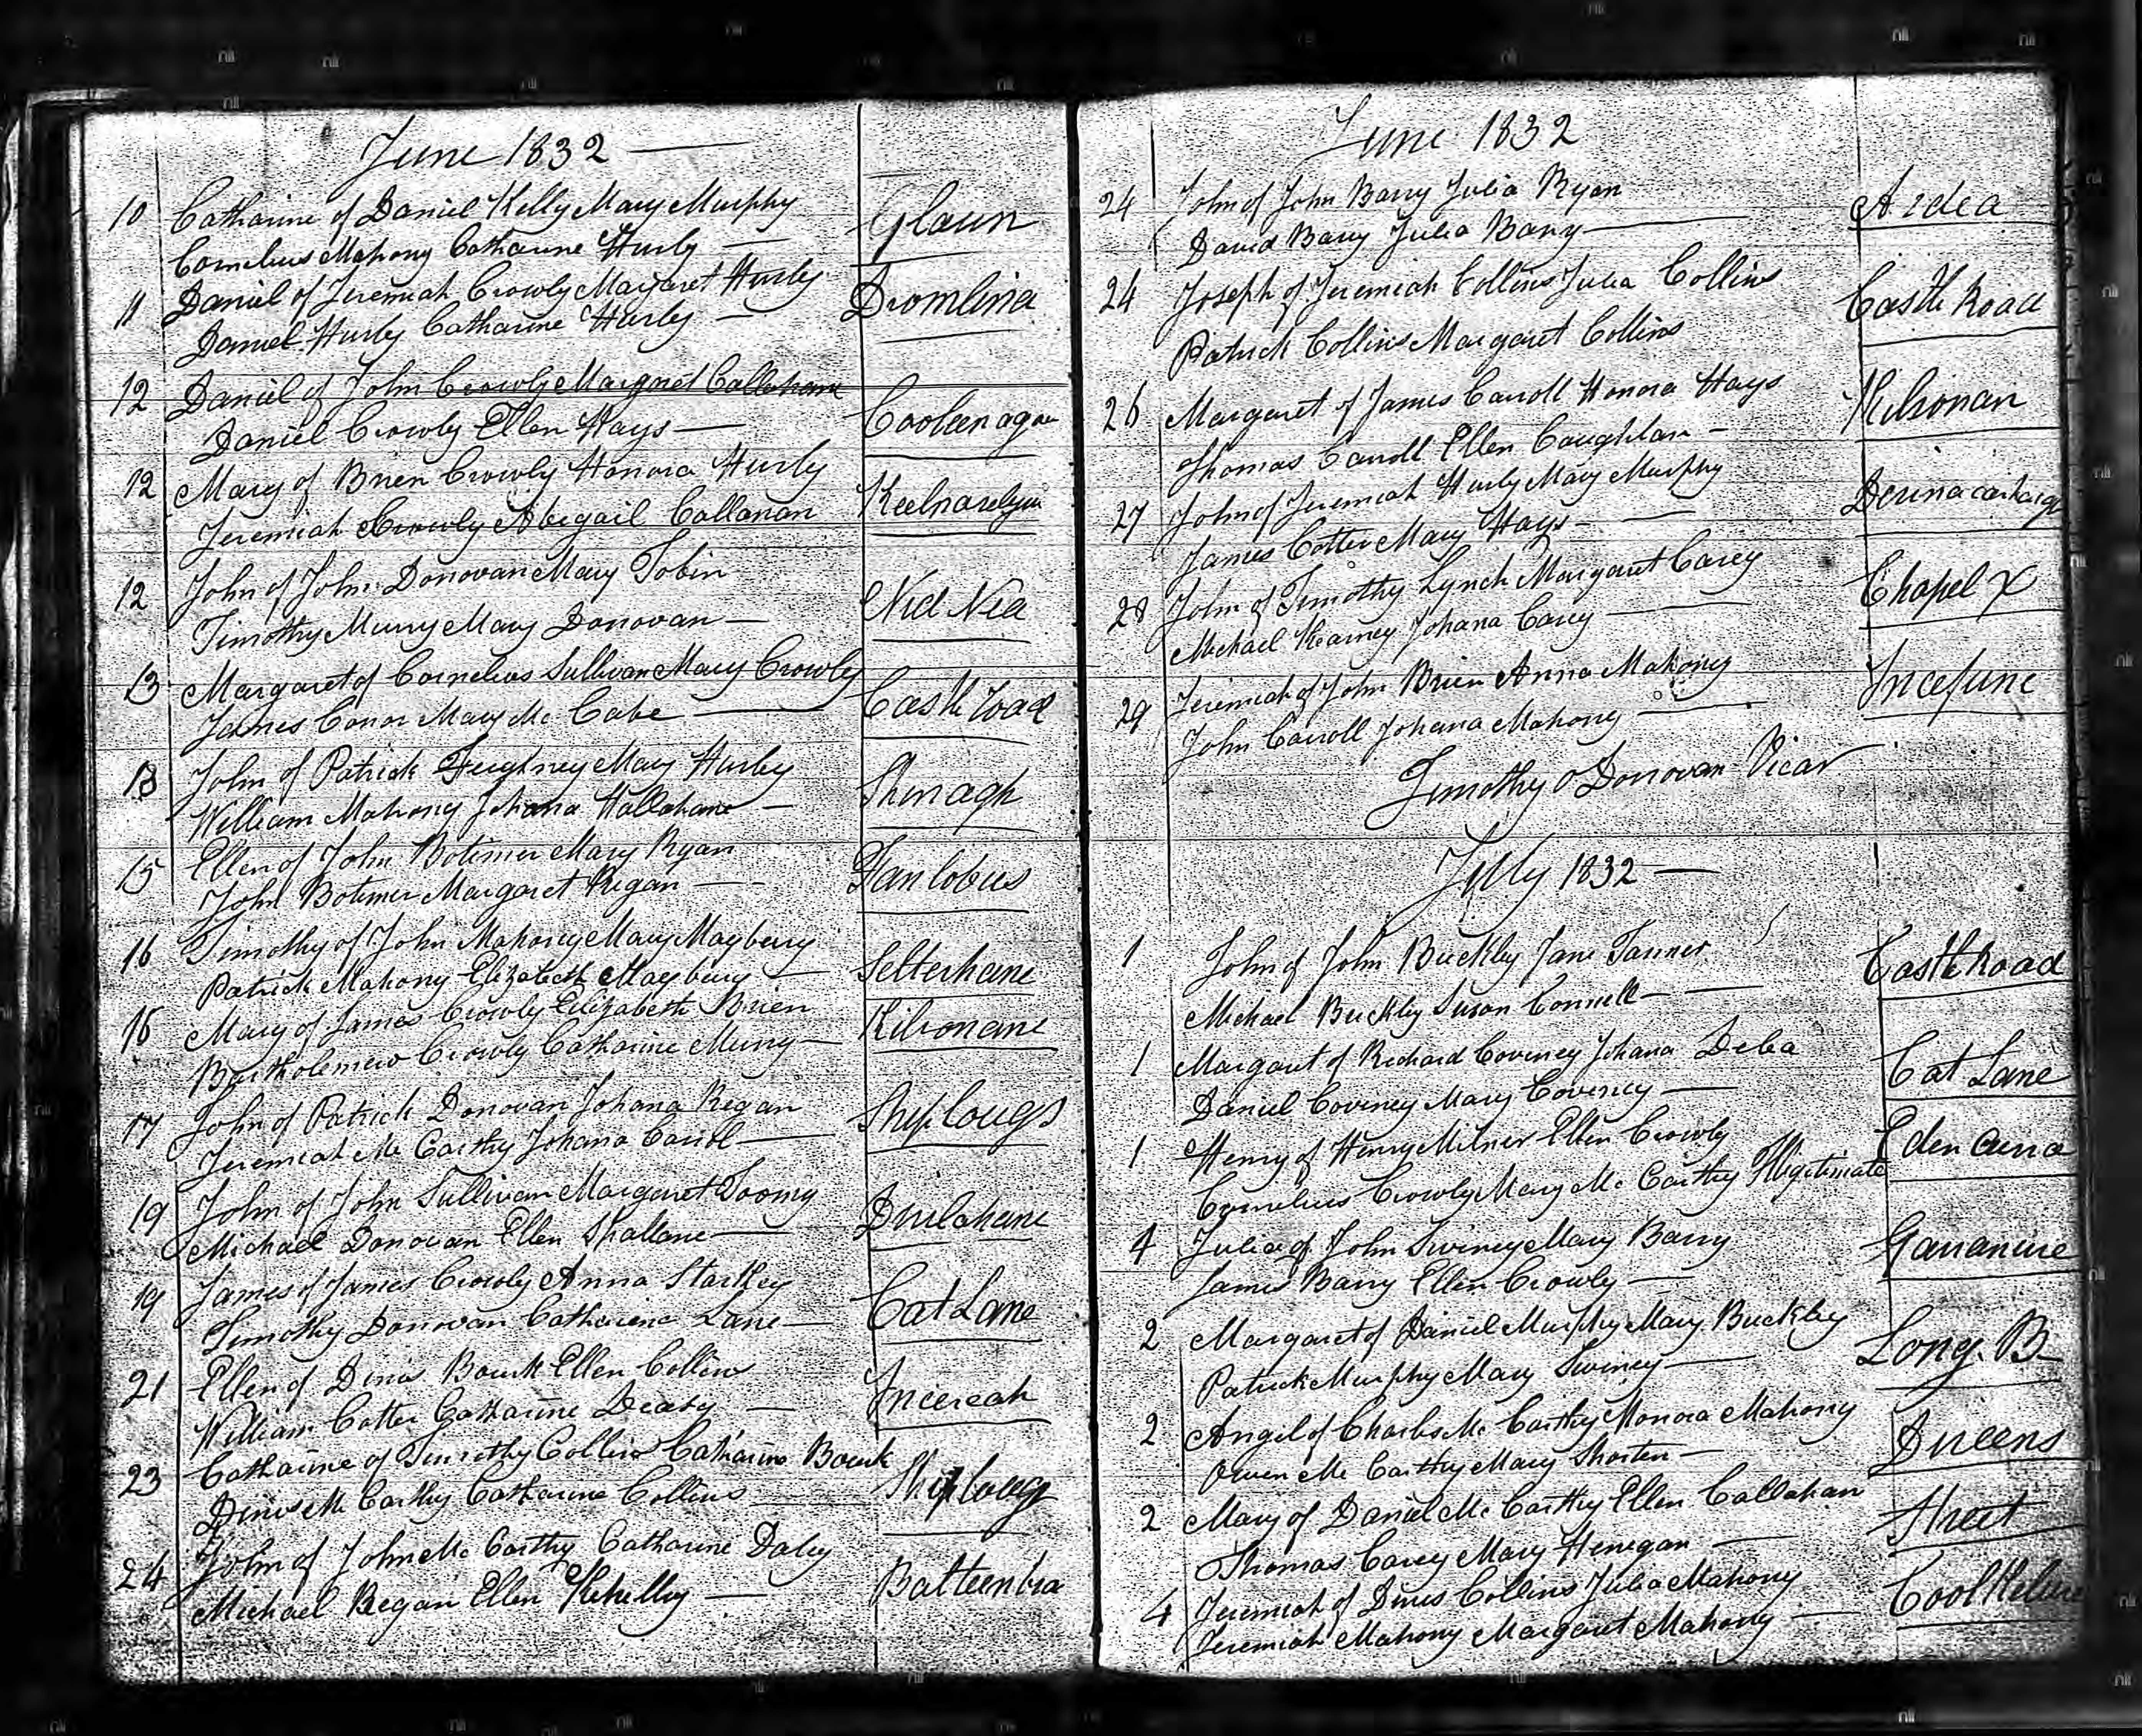 June 1832
10 Catharine of Daniel Kelly Mary Murphy Glaun
Cornelius Mahony Catharine Hurly
11 Daniel of Jeremiah Crowly Margaret Hurly Dromlina
Daniel Hurly Catharine Hurly
12 Daniel of John Crowly Margret Callahane
Daniel Crowly Ellen Hays
12 Mary of Brien Crowly Honora Hurly
Jeremiah Crowly Abegail Callanan
12 John of John Donovan Mary Tobin Nid Nea
Timothy Murry Mary Donovan
13 Margaret of Cornelius Sullivan Mary Crowly Castle road
James Conor Mary Mc Cabe
13 John of Patrick Feighney Mary Hurly Shinagh
William Mahony Johana Hallahane
15 Ellen of John Botimer Mary Ryan Fanlobus
John Botimer Margaret Regan
16 Timothy of John Mahony Mary Mayberry Letterhane
Patrick Mahony Elizabeth Maybury
16 Mary of James Crowly Elizabeth Brien Kilronane
Bartholemew Crowly Catharine Murry
17 John of Patrick Donovan Johana Regan Shiplough
Jeremiah Mc Carthy Johana Carroll
19 John of John Sullivan Margaret Toomy
Michael Donovan Ellen Shallane
19 James of James Crowly Anna Starkey Cat Lane
Timothy Donovan Catharine Lane
21 Ellen of Dinis Bourk Ellen Collins Incereah
William Cotter Catharine Deasy
23 Catharine of Timothy Collins Catharine Bourk Shiplough
Dinis Mc Carthy Catharine Collins
24 John of John Mc Carthy Catharine Daly Batteenbra
Michael Regan Ellen Kehelly
June 1832
24 John of John Barry Julia Ryan Ardea
David Barry Julia Barry
24 Joseph of Jeremiah Collins Julia Collins Castle Road
Patrick Collins Margaret Collins
26 Margaret of James Carroll Honora Hays Kilronan
Thomas Carroll Ellen Coughlan
27 John of Jeremiah Hurly Mary Murphy
James Cotter Mary Hays
28 John of Timothy Lynch Margaret Carey Chapel X
Michael Kearney Johana Carey
29 Jeremiah of John Brien Anna Mahony Incefune
John Carroll Johana Mahony
Timothy O Donovan Vicar
July 1832
1 John of John Buckley Jane Tanner Castle Road
Michael Buckley Susan Connell
1 Margaret of Richard Coveney Johana Delea Cat Lane
Daniel Coveney Mary Coveney
1 Henry of Henry Milner Ellen Crowly Edencurra
Cornelius Crowly Mary Mc Carthy Illigetimate
4 Julia of John Swiney Mary Barry
James Barry Ellen Crowly
2 Margaret of Daniel Murphy Mary Buckley Long. B
Patrick Murphy Mary Swiney
2 Angil of Charles Mc Carthy Honora Mahony Queens
Owen Mc Carthy Mary Shorten
2 Mary of Daniel Mc Carthy Ellen Callahan Street
Thomas Carey Mary Henegan
4 Jeremiah of Denis Collins Julia Mahony
Jeremiah Mahony Margaret Mahony